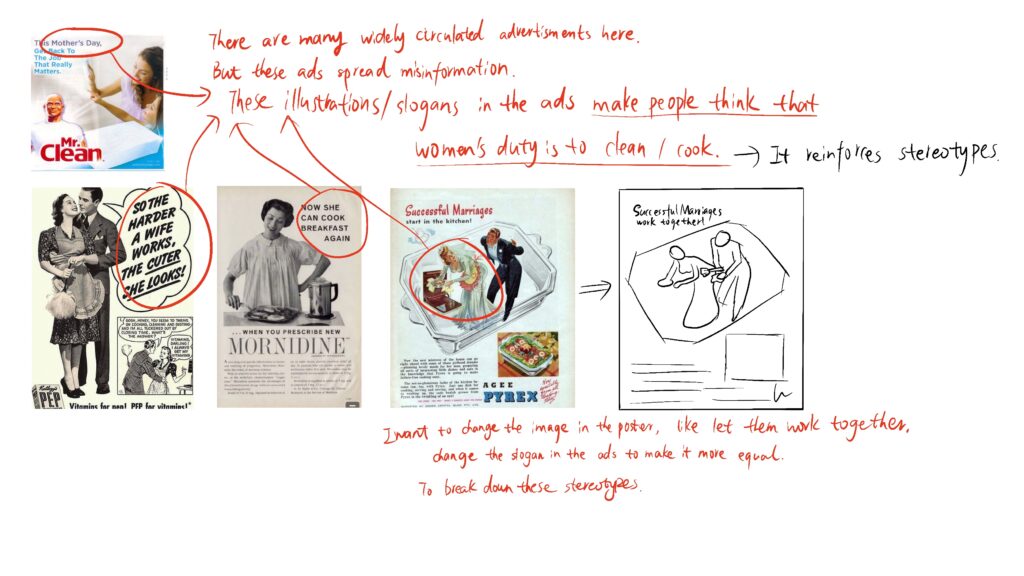 This Mother's Day,
Get Back To
The Job
That Really
Matters.
Mr.
Clean
There are many widely circulated advertisments here.
But these ads spread misinformation.
These illustrations/slogans in the ads make people think that
women's duty is to clean / cook. → It reinforces stereotypes.
SO THE
HARDER
A WIFE
WORKS,
THE CUTER
SHE LOOKS!
GOSH, HONEY, YOU SEEM TO THRIVE
ON COOKING, CLEANING AND DUSTING
- AND I'M ALL TUCKERED OUT BY
CLOSING TIME. WHAT'S
THE ANSWER?
VITAMINS,
DARLING! I
ALWAYS
GET MY
VITAMINS
Kellogg's
PEP
Vitamins for pep! PEP for vitamins!
NOW SHE
CAN COOK
BREAKFAST
AGAIN
... WHEN YOU PRESCRIBE NEW
MORNIDINE
Successful Marriages
start in the kitchen!
AGEE
PYREX
Successful Marriages
work together!
I want to change the image in the poster, like let them work together.
change the slogan in the ads to make it more equal.
To break down these stereotypes.